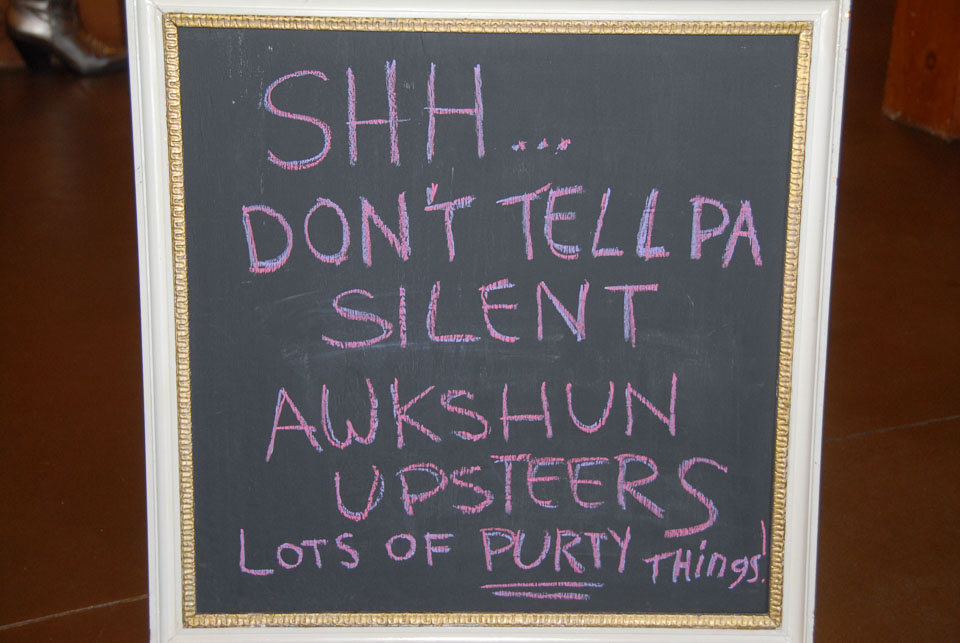 SHH...
DON'T TELL PA
SILENT
AWKSHUN
UPSTEERS
LOTS OF PURTY THings!